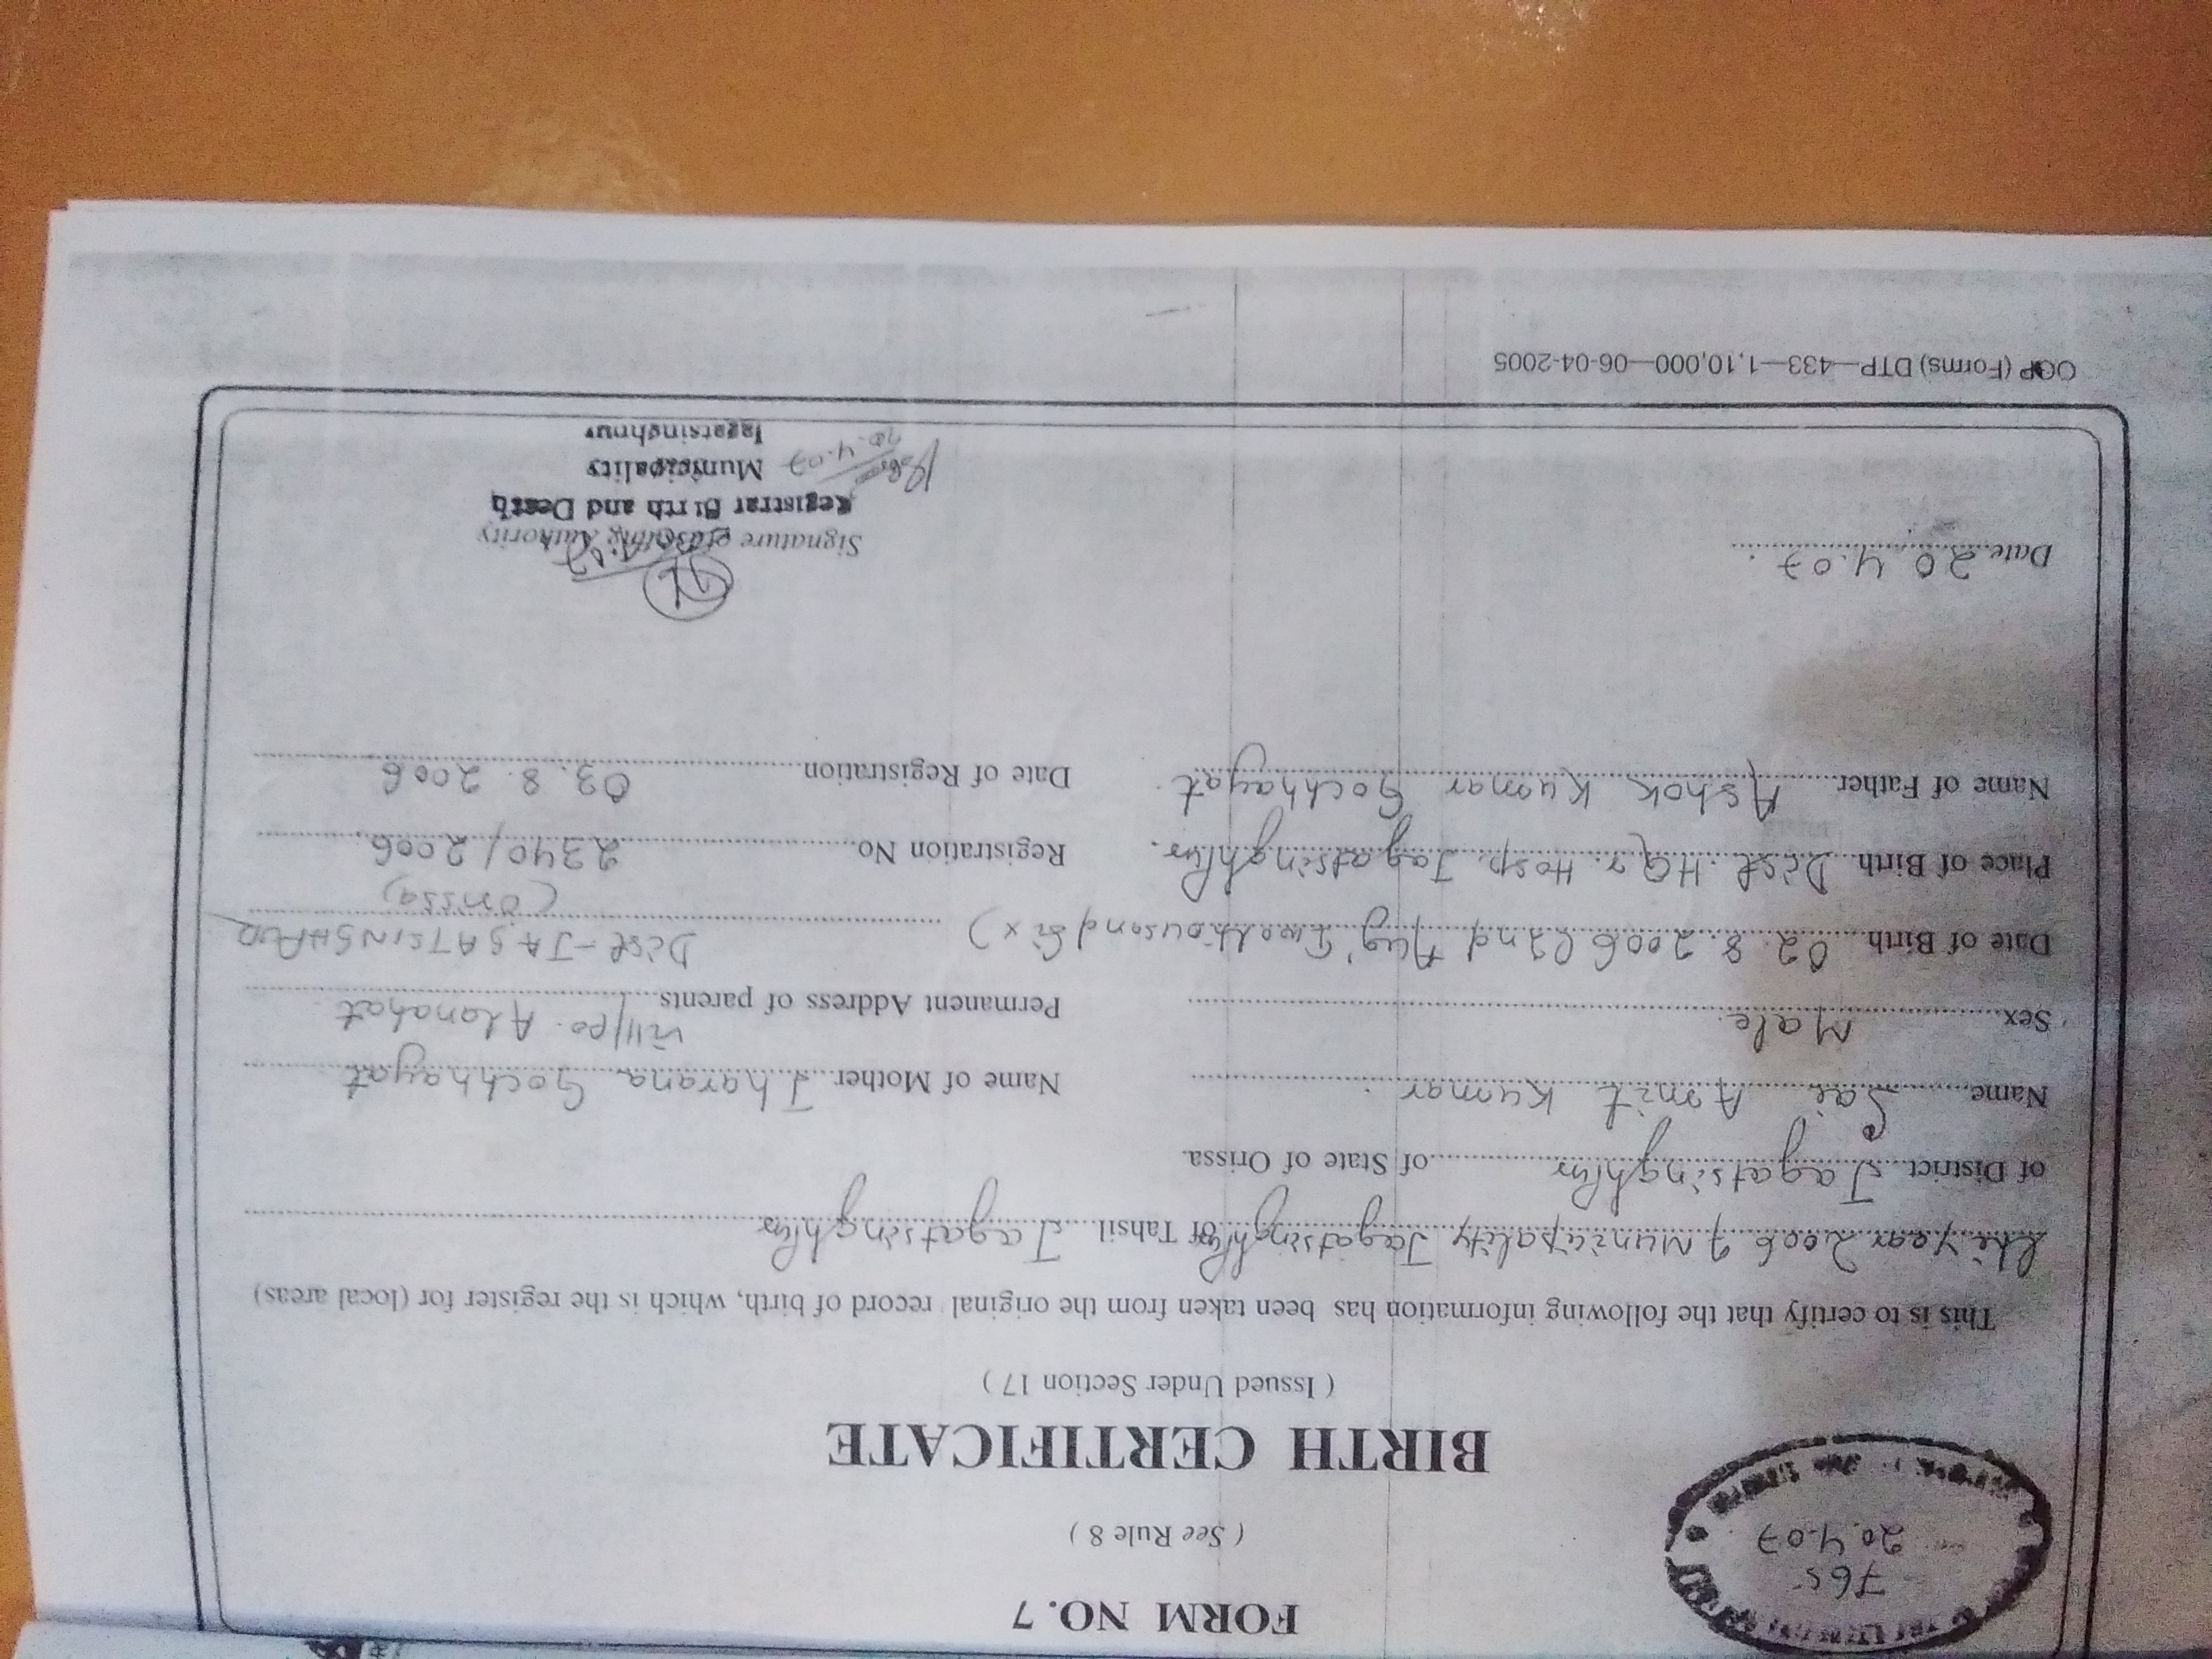 FORM NO. 7
765
20.4.07
( See Rule 8 )
BIRTH CERTIFICATE
( Issued Under Section 17 )
This is to certify that the following information has been taken from the original record of birth, which is the register for (local areas)
year 2006 of Municipality Jagatsinghpur of Tahsil Jagatsinghpur
of District Jagatsinghpur of State of Orissa.
Name Sai Amit Kumar
Name of Mother Jharana Gochhayat
Sex Male.
Permanent Address of parents Vill/po. Alanahat
Date of Birth 02.8.2006 (2nd Aug' Twothousand Six)
Dist-JAGATSINGHPUR
(Orissa)
Place of Birth Dist. HQr. Hosp. Jagatsinghpur.
Registration No 2340/2006
Name of Father Ashok Kumar Gochhayat.
Date of Registration 03.8.2006
Date 20.4.07
Signature of Issuing Authority
Registrar Birth and Death
Municipality
Jagatsinghpur
20.4.07
OGP (Forms) DTP—433—1,10,000—06-04-2005